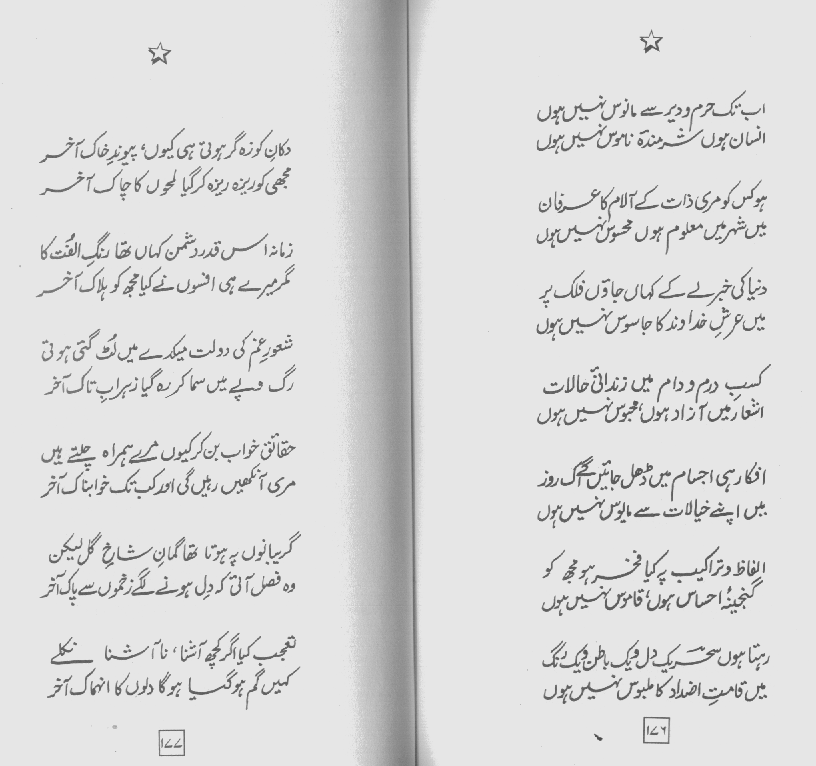 اب تک حرم و دیر سے مانوس نہیں ہوں
انسان ہوں شرمندۂ ناموس نہیں ہوں
ہو کس کو مری ذات کے آلام کا عرفان
میں شہر میں معلوم ہوں محسوس نہیں ہوں
دنیا کی خبر لے کے کہاں جاؤں فلک پر
میں عرشِ خداوند کا جاسوس نہیں ہوں
کسبِ درم و دام میں زندانیٔ حالات
اشعار میں آزاد ہوں، محبوس نہیں ہوں
افکار ہی اجسام میں ڈھل جائیں گے اک روز
میں اپنے خیالات سے مایوس نہیں ہوں
الفاظ و تراکیب پہ کیا فخر ہو مجھ کو
گنجینۂ احساس ہوں، قاموس نہیں ہوں
رہتا ہوں سحر یک دل و یک باطن و یک رنگ
میں قامتِ اضداد کا ملبوس نہیں ہوں
۱۷۶
دکانِ کوزہ گر ہوتی ہی کیوں، پیوندِ خاک آخر
مجھی کو ریزہ ریزہ کر گیا لمحوں کا چاک آخر
زمانہ اس قدر دشمن کہاں تھا رنگِ الفت کا
مگر میرے ہی افسوں نے کیا مجھ کو ہلاک آخر
شعورِ غم کی دولت میکدے میں لُٹ گئی ہوتی
رگ و پے میں سما کر رہ گیا زہرابِ تاک آخر
حقائق خواب بن کر کیوں مرے ہمراہ چلتے ہیں
مری آنکھیں رہیں گی اور کب تک خوابناک آخر
گریبانوں پہ ہوتا تھا گمانِ شاخِ گل لیکن
وہ فصل آئی کہ دِل ہونے لگے زخموں سے پاک آخر
تعجب کیا اگر کچھ آشنا، نا آشنا نکلے
کہیں گم ہو گیا ہو گا دلوں کا انہماک آخر
۱۷۷